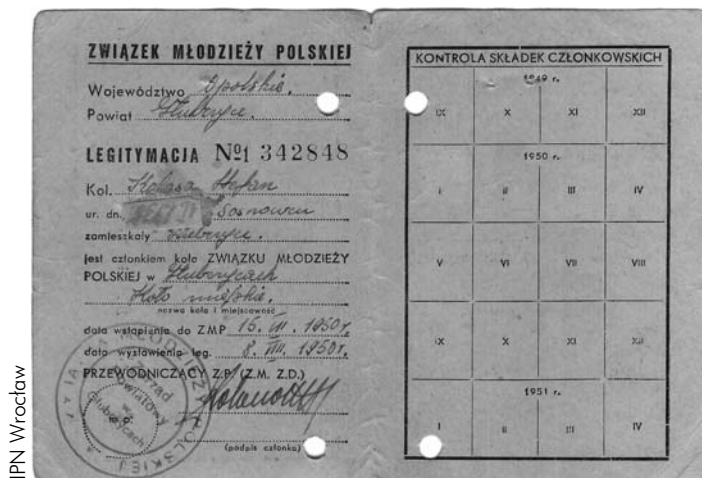 ZWIĄZEK MŁODZIEŻY POLSKIEJ
Województwo Opolskie.
Powiat Głubczyce.
LEGITYMACJA № 1 342848
Kol. Kolasa Stefan
ur. dn. Sosnowcu
zamieszkały Głubczyce.
jest członkiem koła ZWIĄZKU MŁODZIEŻY
POLSKIEJ w Głubczycach
Koło miejskie.
nazwa koła i miejscowość
data wstąpienia do ZMP 15. III. 1950r.
data wystawienia leg. 8. VIII. 1950r.
PRZEWODNICZĄCY Z.P. (Z.M. Z.D.)
(podpis członka)
KONTROLA SKŁADEK CZŁONKOWSKICH
1949 r.
IX X XI XII
1950 r.
I II III IV
V VI VII VIII
IX X XI XII
1951 r.
I II III IV
IPN Wrocław